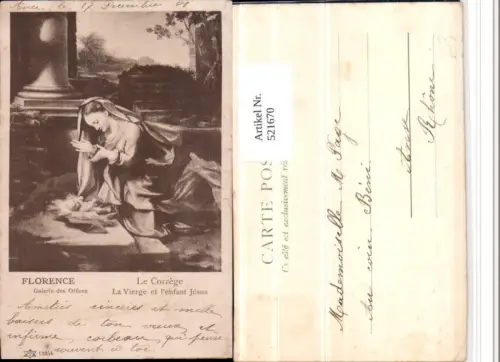 le 17 Decembre
FLORENCE
Galerie des Offices
Le Corrège
La Vierge et l'enfant Jésus
Amitiés sincères et mille
baisers de ton vieux et
infirme corbeau qui pense
souvent à toi
Artikel Nr.
521670
CARTE POS
Ce côté est exclusivement rés
Mademoiselle M. Page
au coin Béni
Rhône